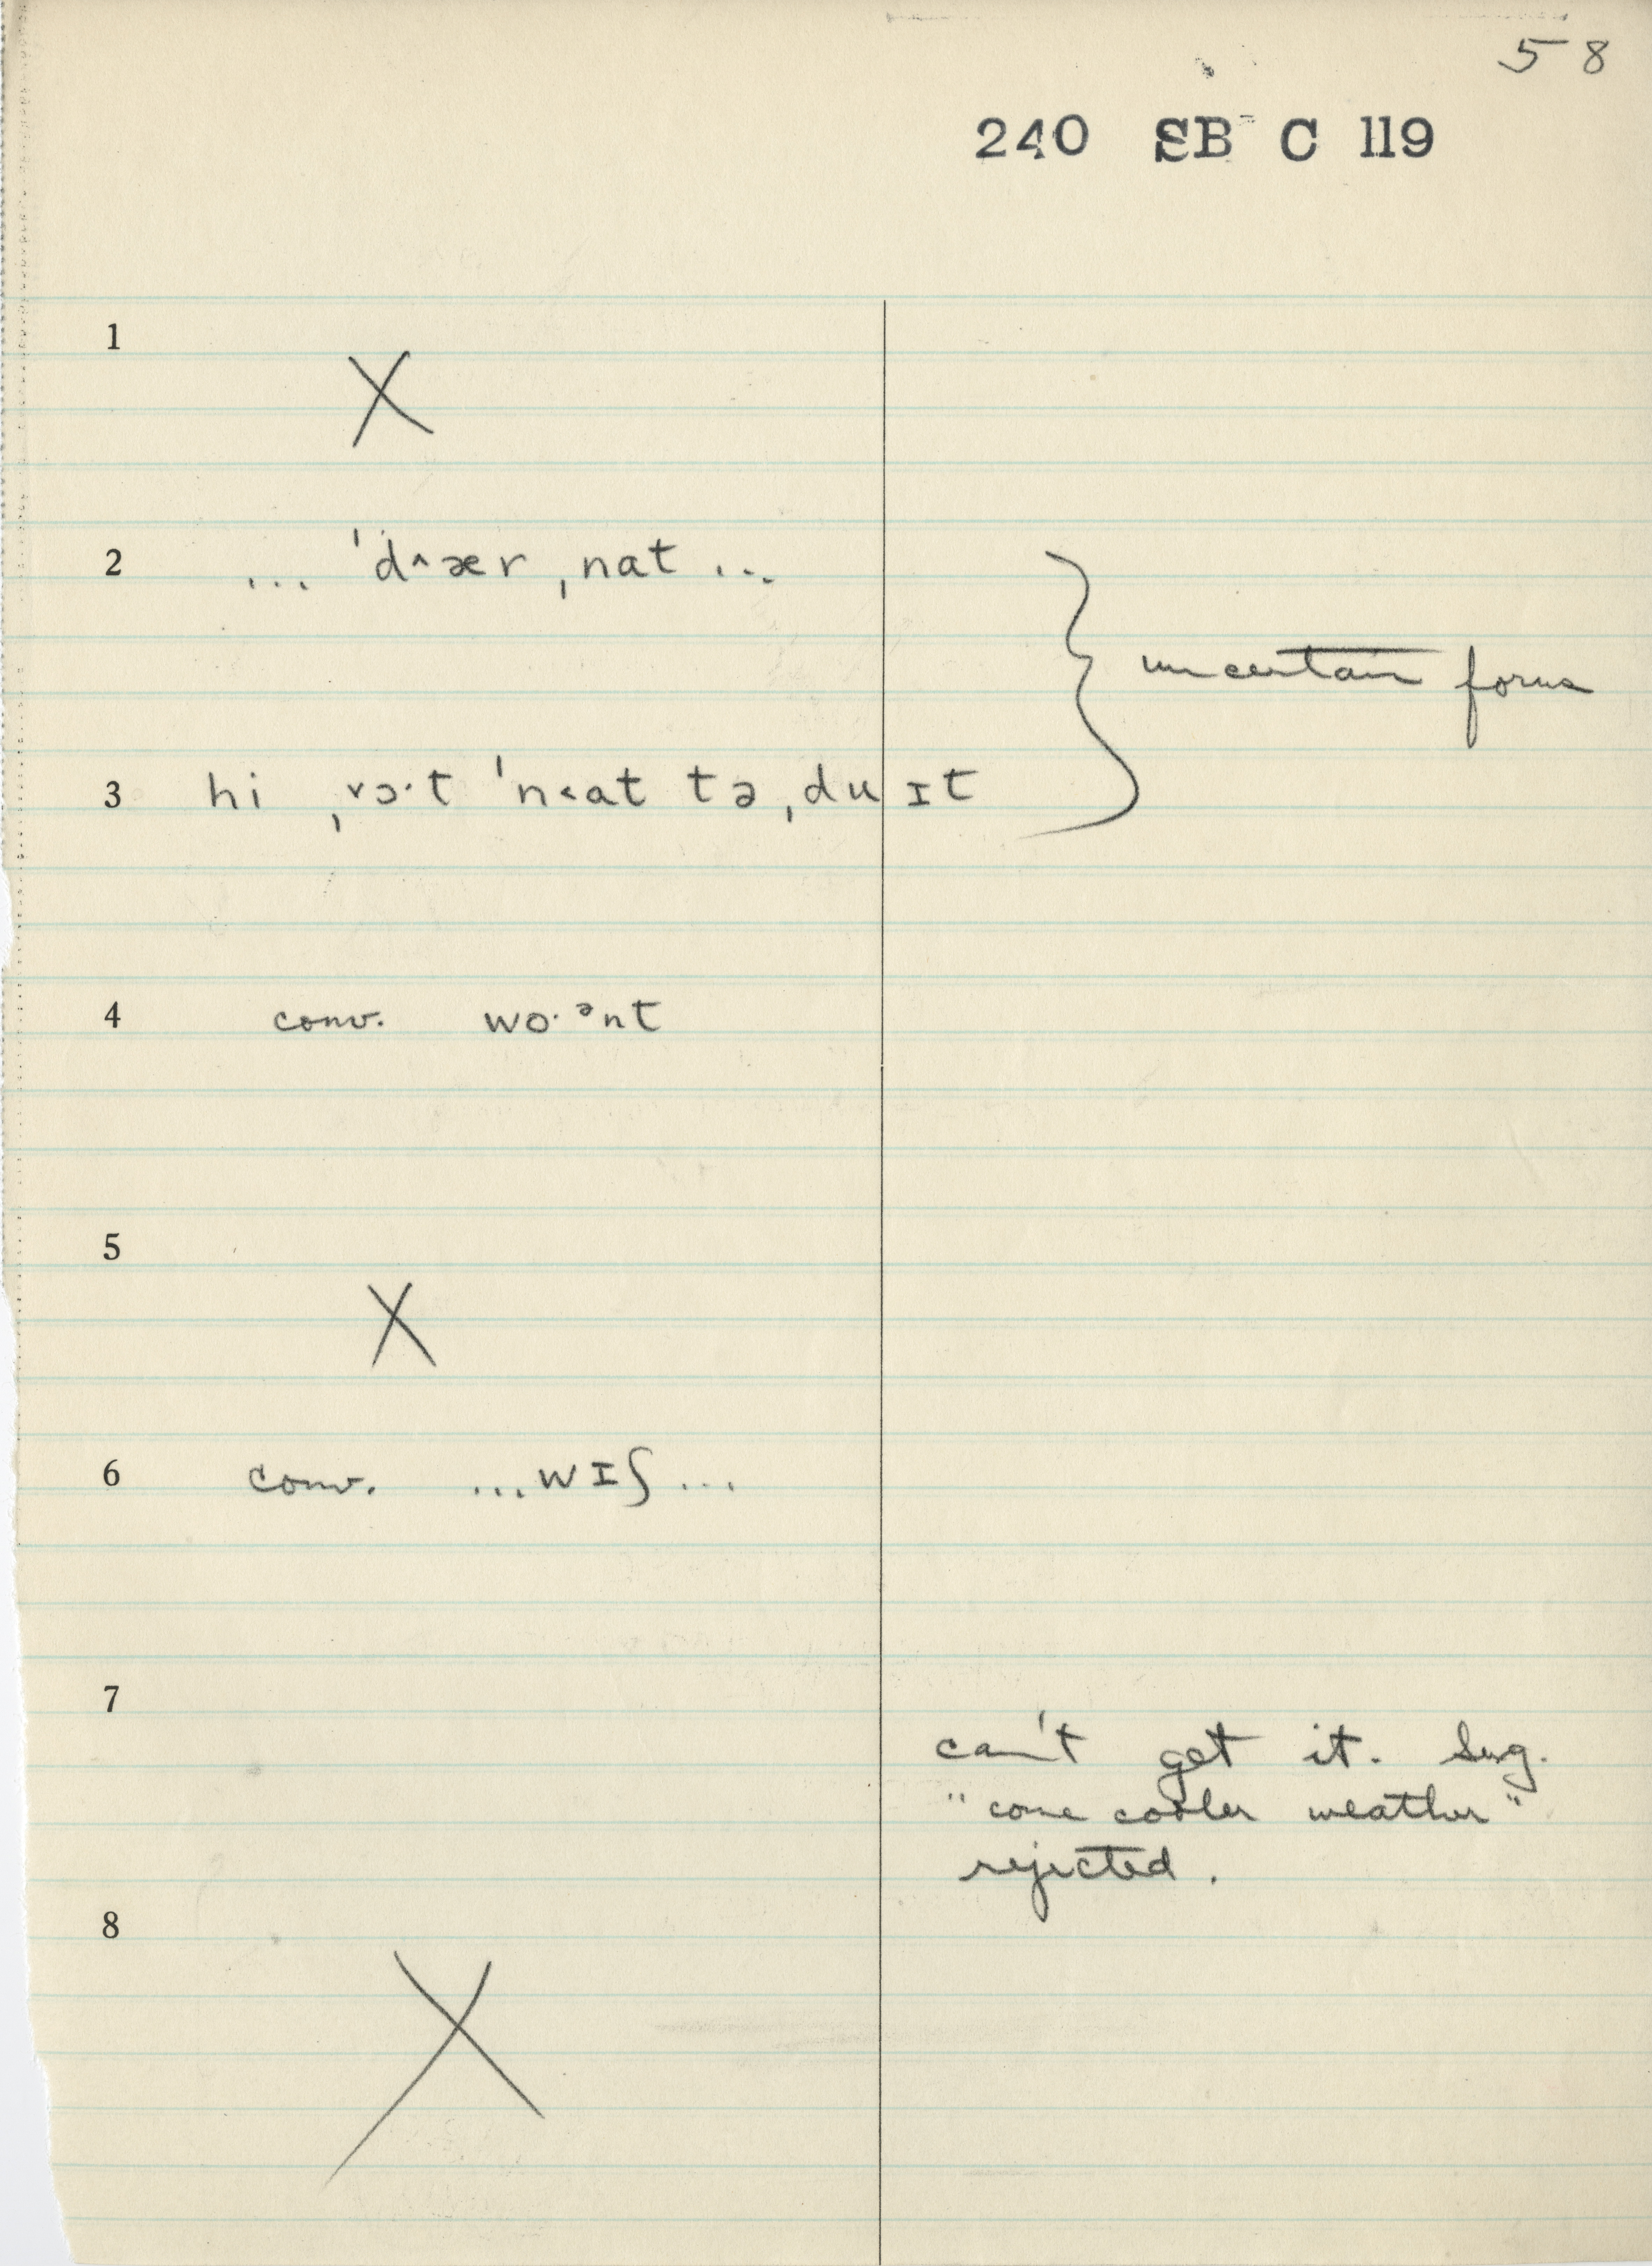 58
240 SB C 119
1
X
2 ... ˈd^ær ˌnat ...
uncertain forms
3 hi ˌɔ·t ˈn<at tə ˌdu ɪt
4 conv. wo·ᵊnt
5
X
6 conv. ...wɪʃ...
7
can't get it. Sug.
"come cooler weather"
rejected.
8
X